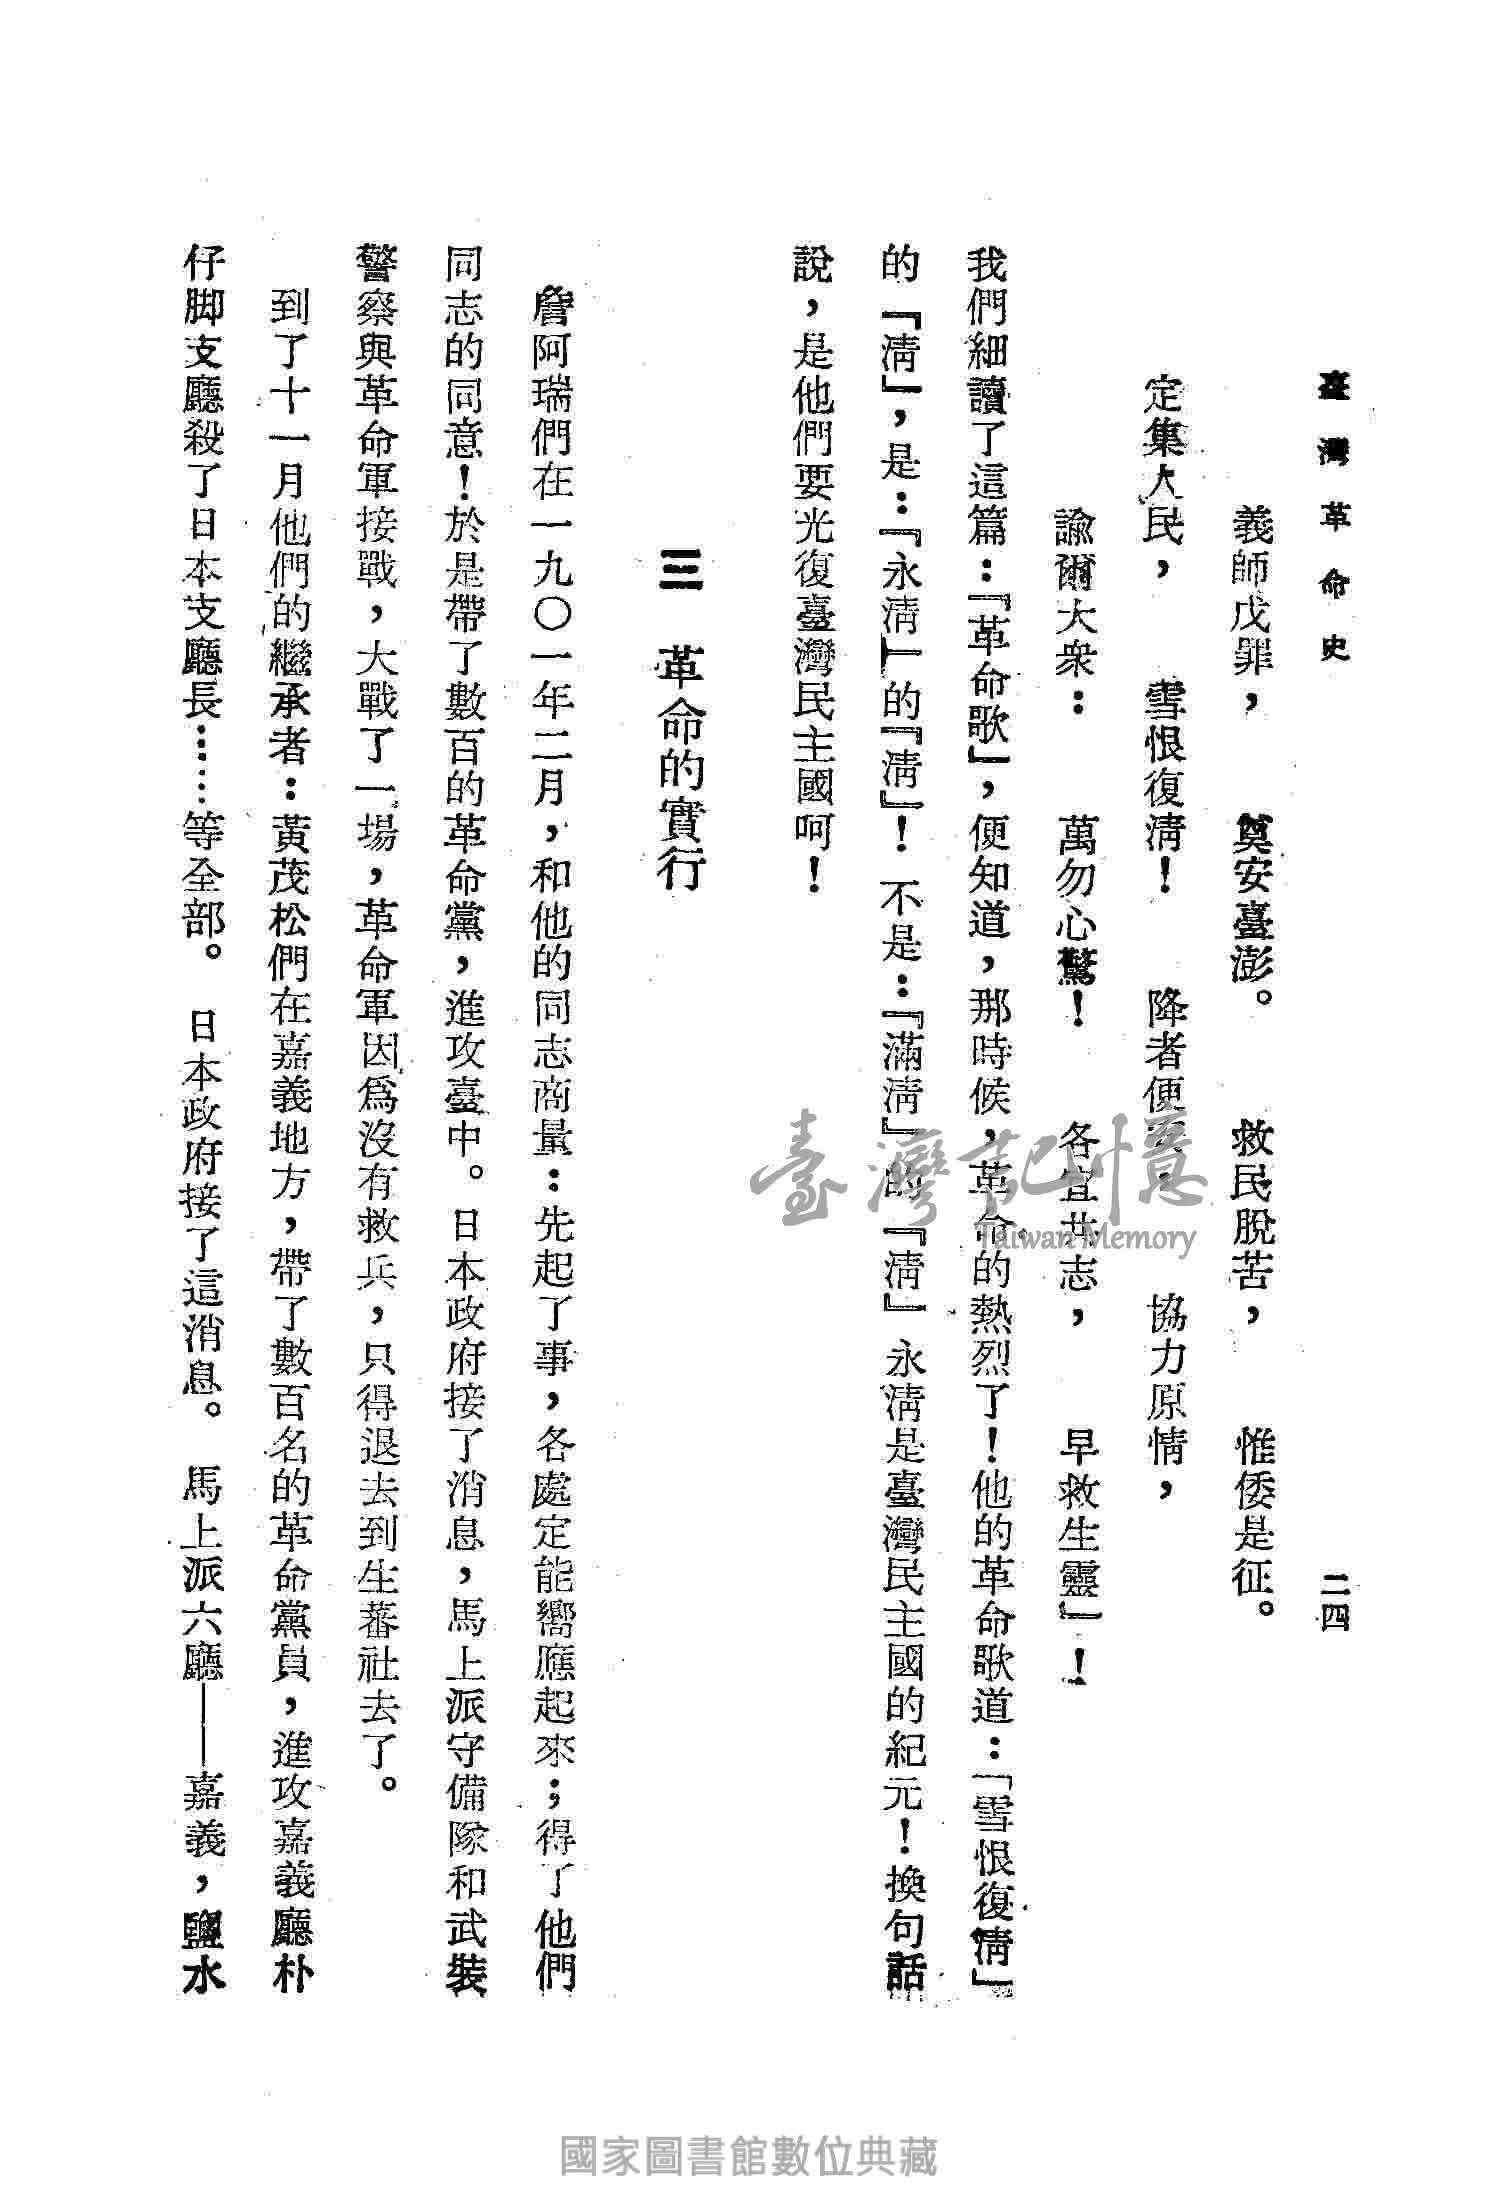 臺灣革命史
二四
義師戊罪，　奠安臺澎。　救民脫苦，　惟倭是征。
定集人民，　雪恨復清！　降者便　協力原情，
諭爾大衆：　萬勿心驚！　各宜共志，　早救生靈」！
我們細讀了這篇：『革命歌』，便知道，那時候，革命的熱烈了！他的革命歌道：「雪恨復清」
的『清』，是：『永清』的『清』！不是：『滿清』的『清』永清是臺灣民主國的紀元！換句話
說，是他們要光復臺灣民主國呵！
三　革命的實行
詹阿瑞們在一九〇一年二月，和他的同志商量：先起了事，各處定能嚮應起來；得了他們
同志的同意！於是帶了數百的革命黨，進攻臺中。日本政府接了消息，馬上派守備隊和武裝
警察與革命軍接戰，大戰了一場，革命軍因爲沒有救兵，只得退去到生蕃社去了。
到了十一月他們的繼承者：黃茂松們在嘉義地方，帶了數百名的革命黨員，進攻嘉義廳朴
仔脚支廳殺了日本支廳長……等全部。日本政府接了這消息。馬上派六廳——嘉義，鹽水
臺灣記憶
Taiwan Memory
國家圖書館數位典藏